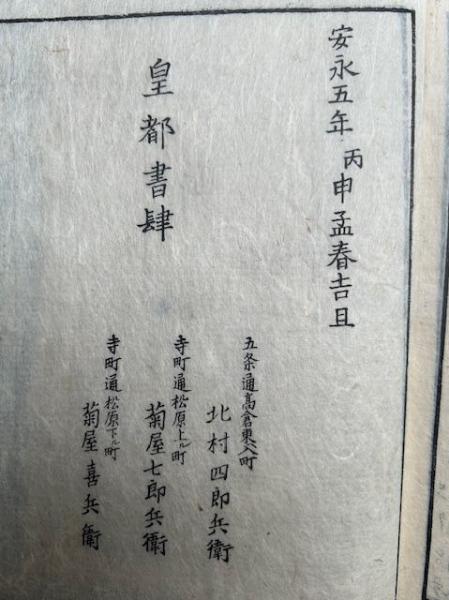 安永五年丙申孟春吉旦
皇都書肆
五条通高倉東入町
北村四郎兵衛
寺町通松原上ル町
菊屋七郎兵衛
寺町通松原下ル町
菊屋喜兵衛